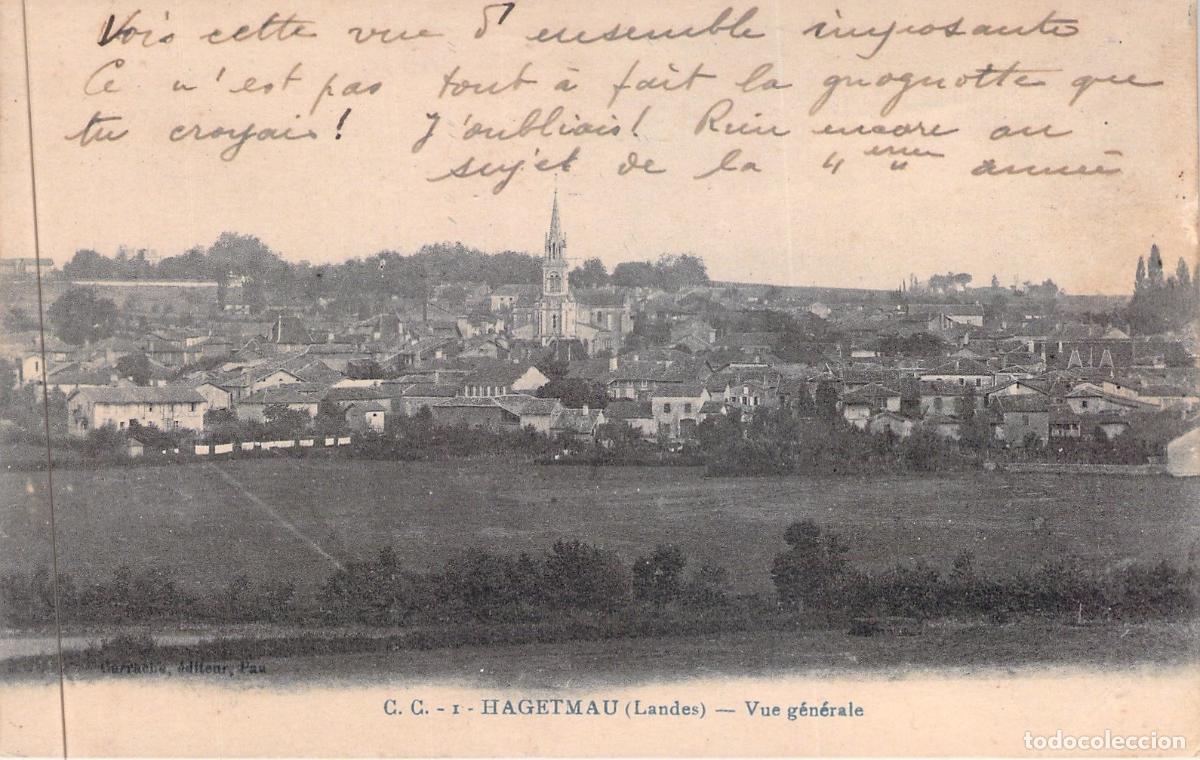 Vois cette vue d'ensemble imposante
Ce n'est pas tout à fait la gnognotte que
tu croyais! J'oubliais! Rien encore au
sujet de la 4ème année
Carrache, éditeur, Pau
C. C. - 1 - HAGETMAU (Landes) — Vue générale
todocoleccion